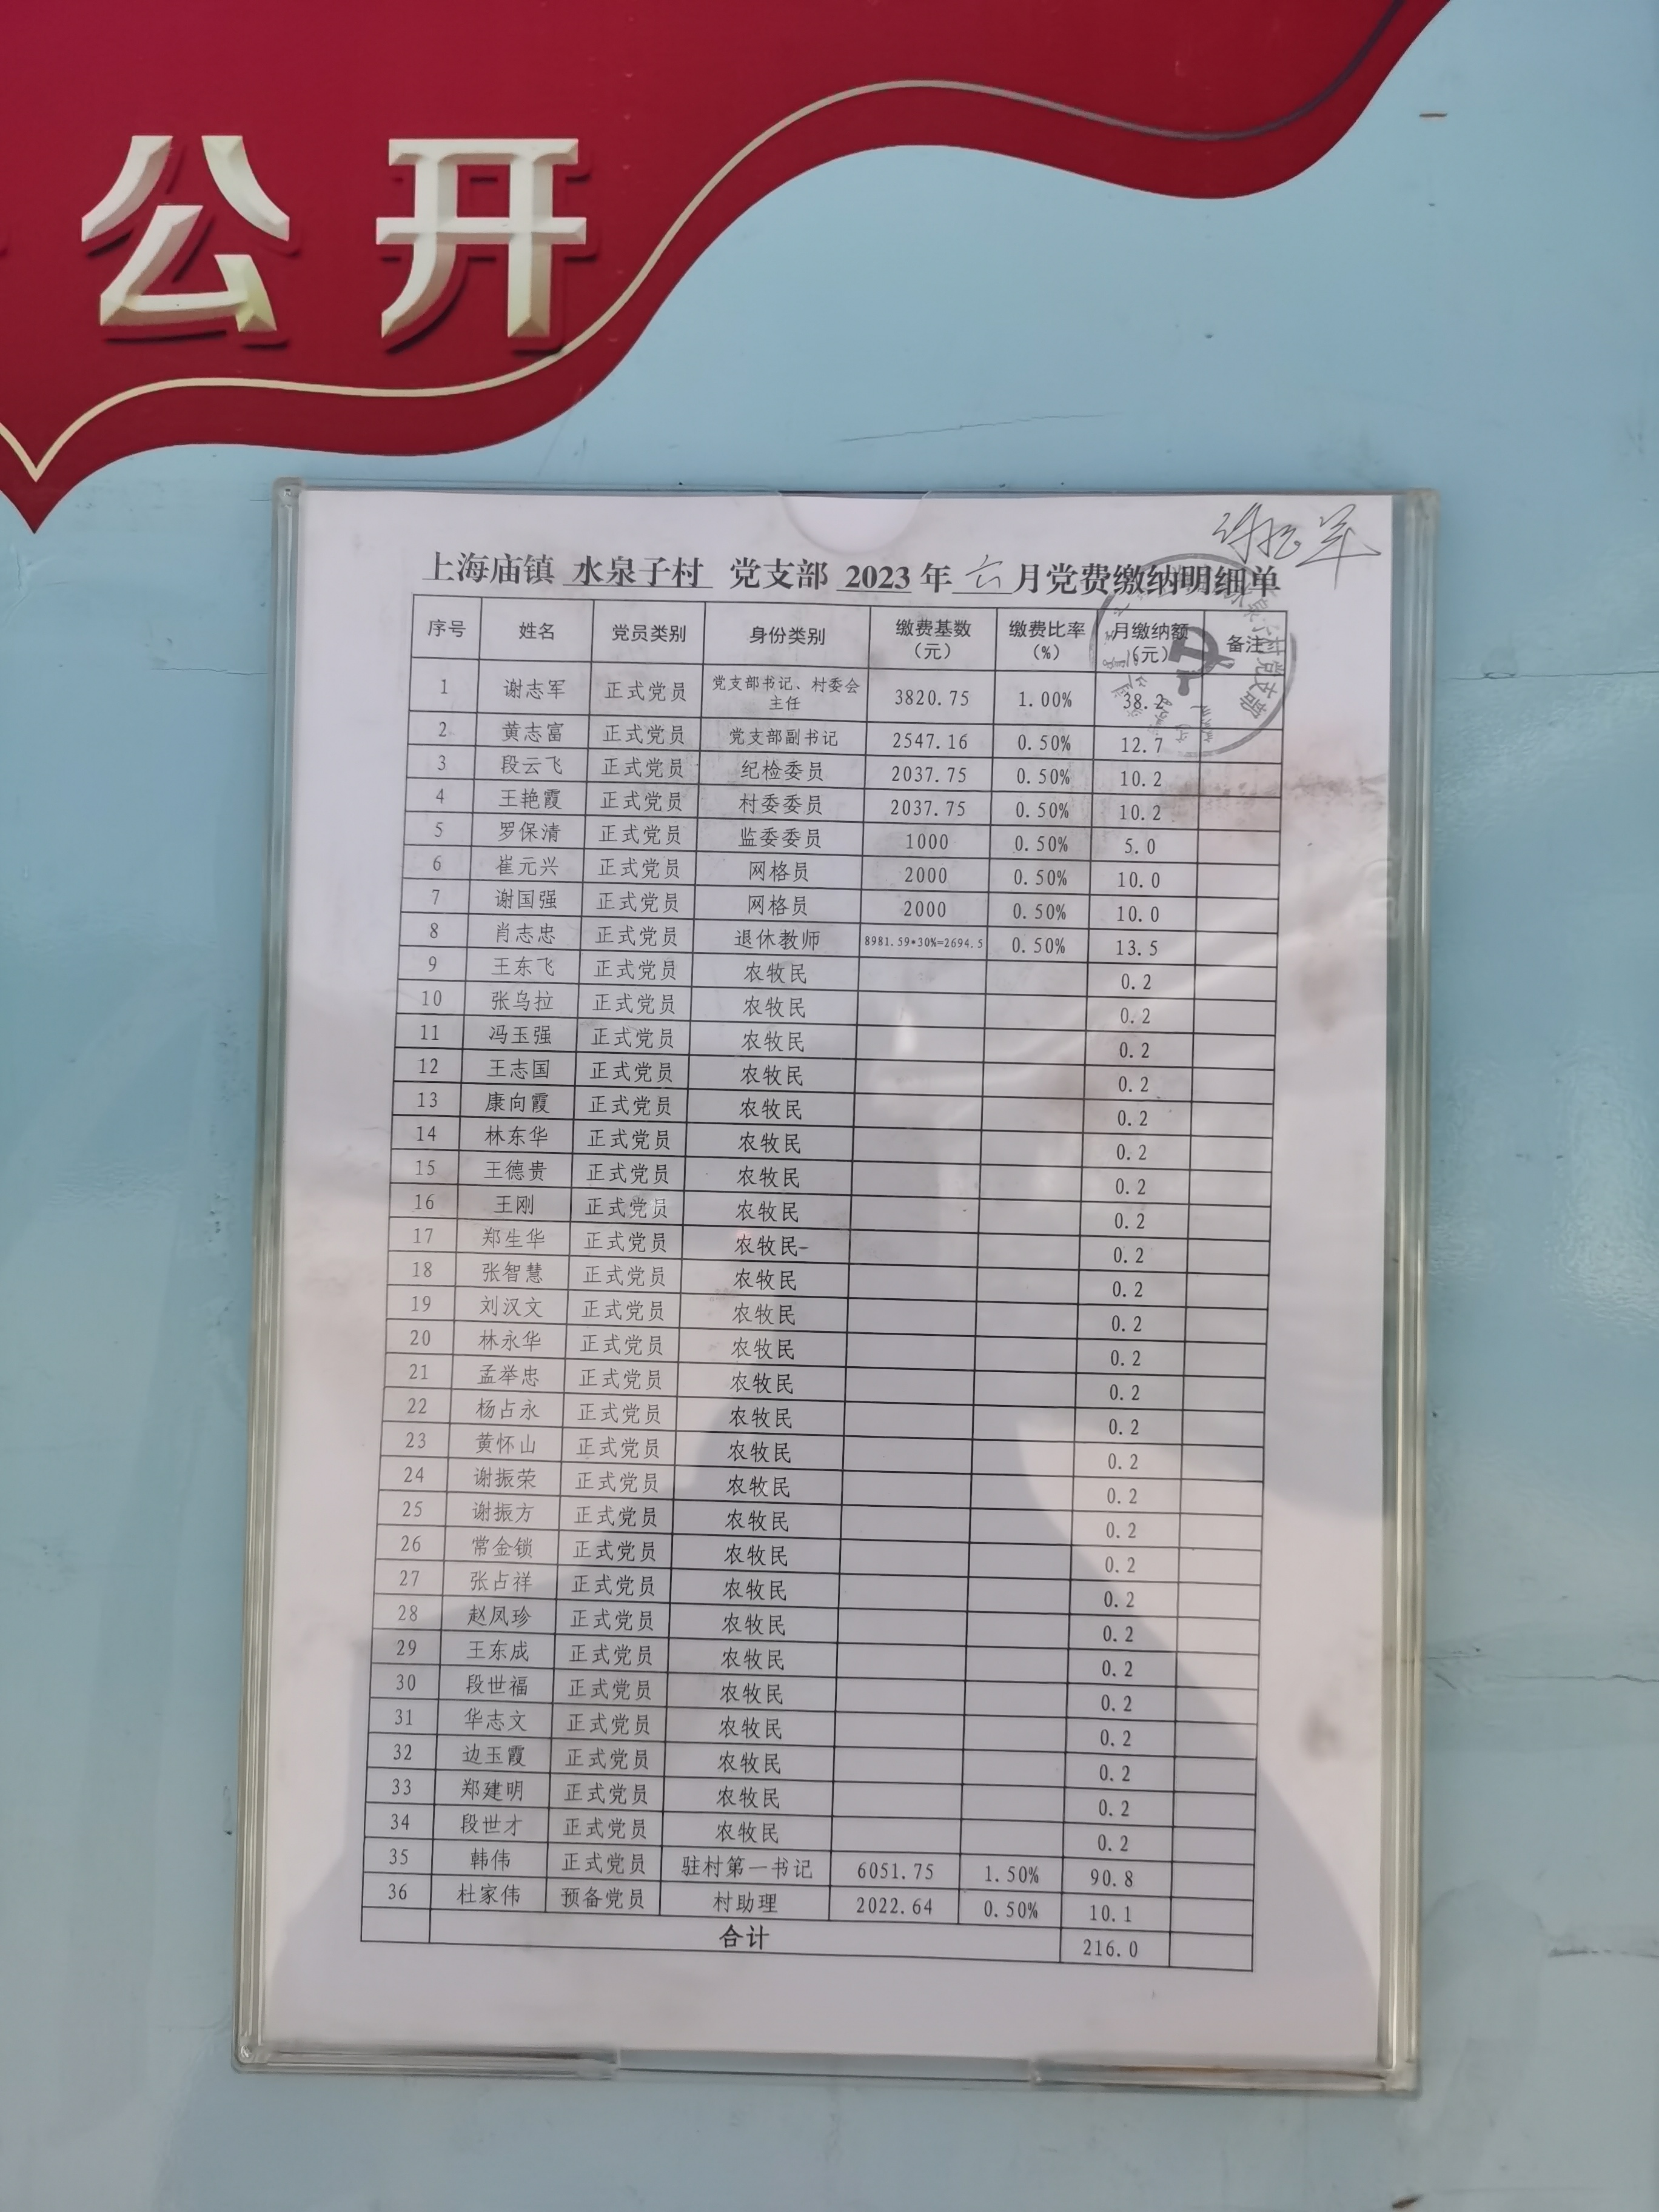 公开
上海庙镇 水泉子村 党支部 2023 年 六 月党费缴纳明细单
序号 姓名 党员类别 身份类别 缴费基数（元） 缴费比率（%） 月缴纳额（元） 备注
1 谢志军 正式党员 党支部书记、村委会主任 3820.75 1.00% 38.2
2 黄志富 正式党员 党支部副书记 2547.16 0.50% 12.7
3 段云飞 正式党员 纪检委员 2037.75 0.50% 10.2
4 王艳霞 正式党员 村委委员 2037.75 0.50% 10.2
5 罗保清 正式党员 监委委员 1000 0.50% 5.0
6 崔元兴 正式党员 网格员 2000 0.50% 10.0
7 谢国强 正式党员 网格员 2000 0.50% 10.0
8 肖志忠 正式党员 退休教师 8981.59*30%=2694.5 0.50% 13.5
9 王东飞 正式党员 农牧民 0.2
10 张乌拉 正式党员 农牧民 0.2
11 冯玉强 正式党员 农牧民 0.2
12 王志国 正式党员 农牧民 0.2
13 康向霞 正式党员 农牧民 0.2
14 林东华 正式党员 农牧民 0.2
15 王德贵 正式党员 农牧民 0.2
16 王刚 正式党员 农牧民 0.2
17 郑生华 正式党员 农牧民 0.2
18 张智慧 正式党员 农牧民 0.2
19 刘汉文 正式党员 农牧民 0.2
20 林永华 正式党员 农牧民 0.2
21 孟举忠 正式党员 农牧民 0.2
22 杨占永 正式党员 农牧民 0.2
23 黄怀山 正式党员 农牧民 0.2
24 谢振荣 正式党员 农牧民 0.2
25 谢振方 正式党员 农牧民 0.2
26 常金锁 正式党员 农牧民 0.2
27 张占祥 正式党员 农牧民 0.2
28 赵凤珍 正式党员 农牧民 0.2
29 王东成 正式党员 农牧民 0.2
30 段世福 正式党员 农牧民 0.2
31 华志文 正式党员 农牧民 0.2
32 边玉霞 正式党员 农牧民 0.2
33 郑建明 正式党员 农牧民 0.2
34 段世才 正式党员 农牧民 0.2
35 韩伟 正式党员 驻村第一书记 6051.75 1.50% 90.8
36 杜家伟 预备党员 村助理 2022.64 0.50% 10.1
合计 216.0